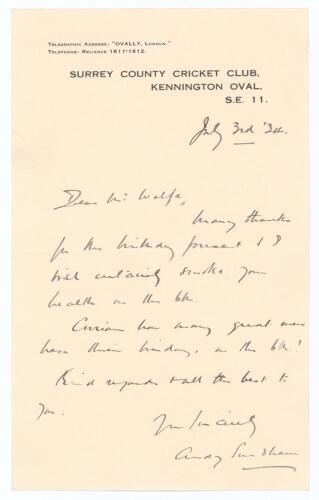 TELEGRAPHIC ADDRESS; "OVALLY, LONDON."
TELEPHONE: RELIANCE 1811-1812.
SURREY COUNTY CRICKET CLUB,
KENNINGTON OVAL,
S.E. 11.
July 3rd '34.
Dear Mr Wolfe,
Many thanks
for the birthday present & I
will certainly smoke your
health on the 6th.
Curious how many great men
have their birthdays on the 6th!
Kind regards & all the best to
you.
Yrs Sincerely
Andy Sandham